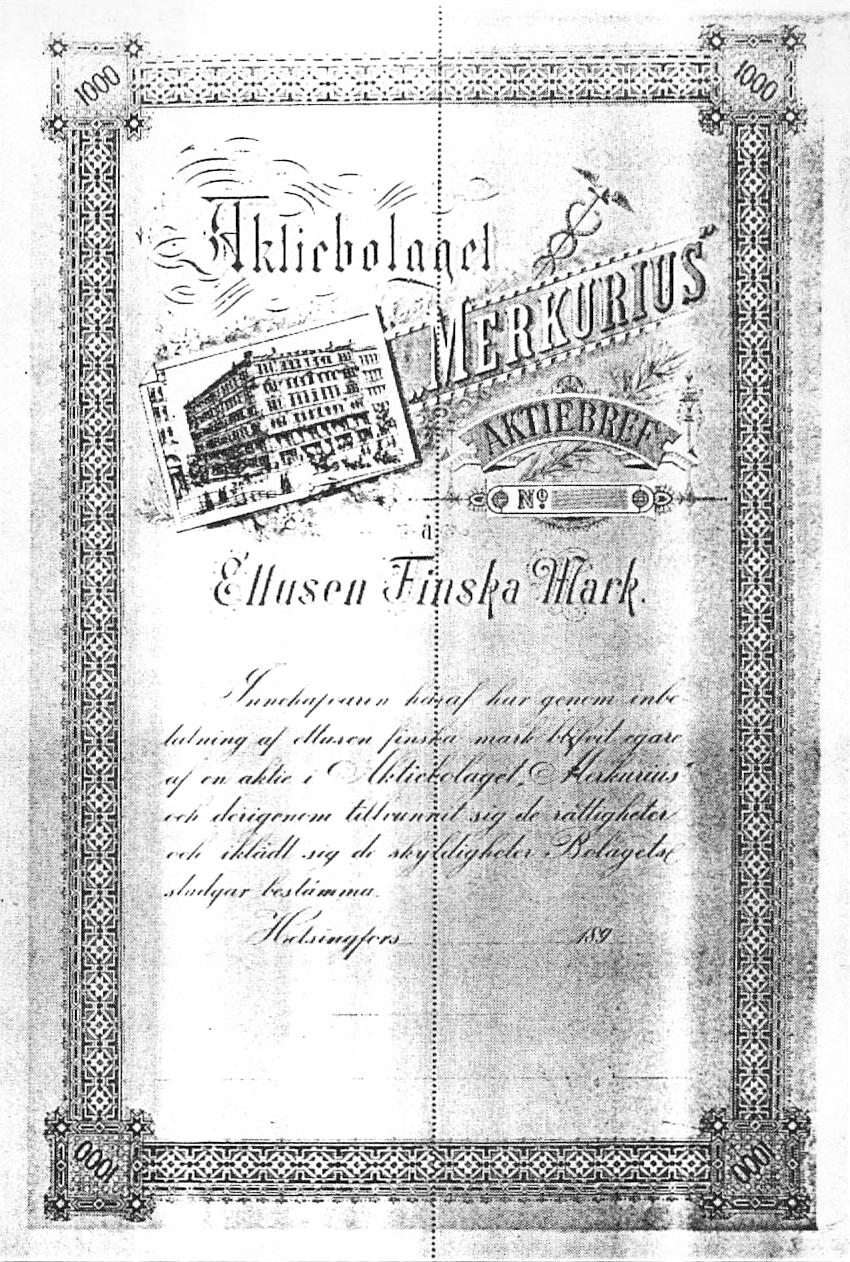 1000
1000
Aktiebolaget
„MERKURIUS”
AKTIEBREF
No
à
Ettusen Finska Mark.
Innehafvaren häraf har genom inbe
talning af ettusen finska mark blifvit egare
af en aktie i Aktiebolaget „Merkurius”
och derigenom tillvunnit sig de rättigheter
och iklädt sig de skyldigheter Bolagets
stadgar bestämma.
Helsingfors 189
1000
1000